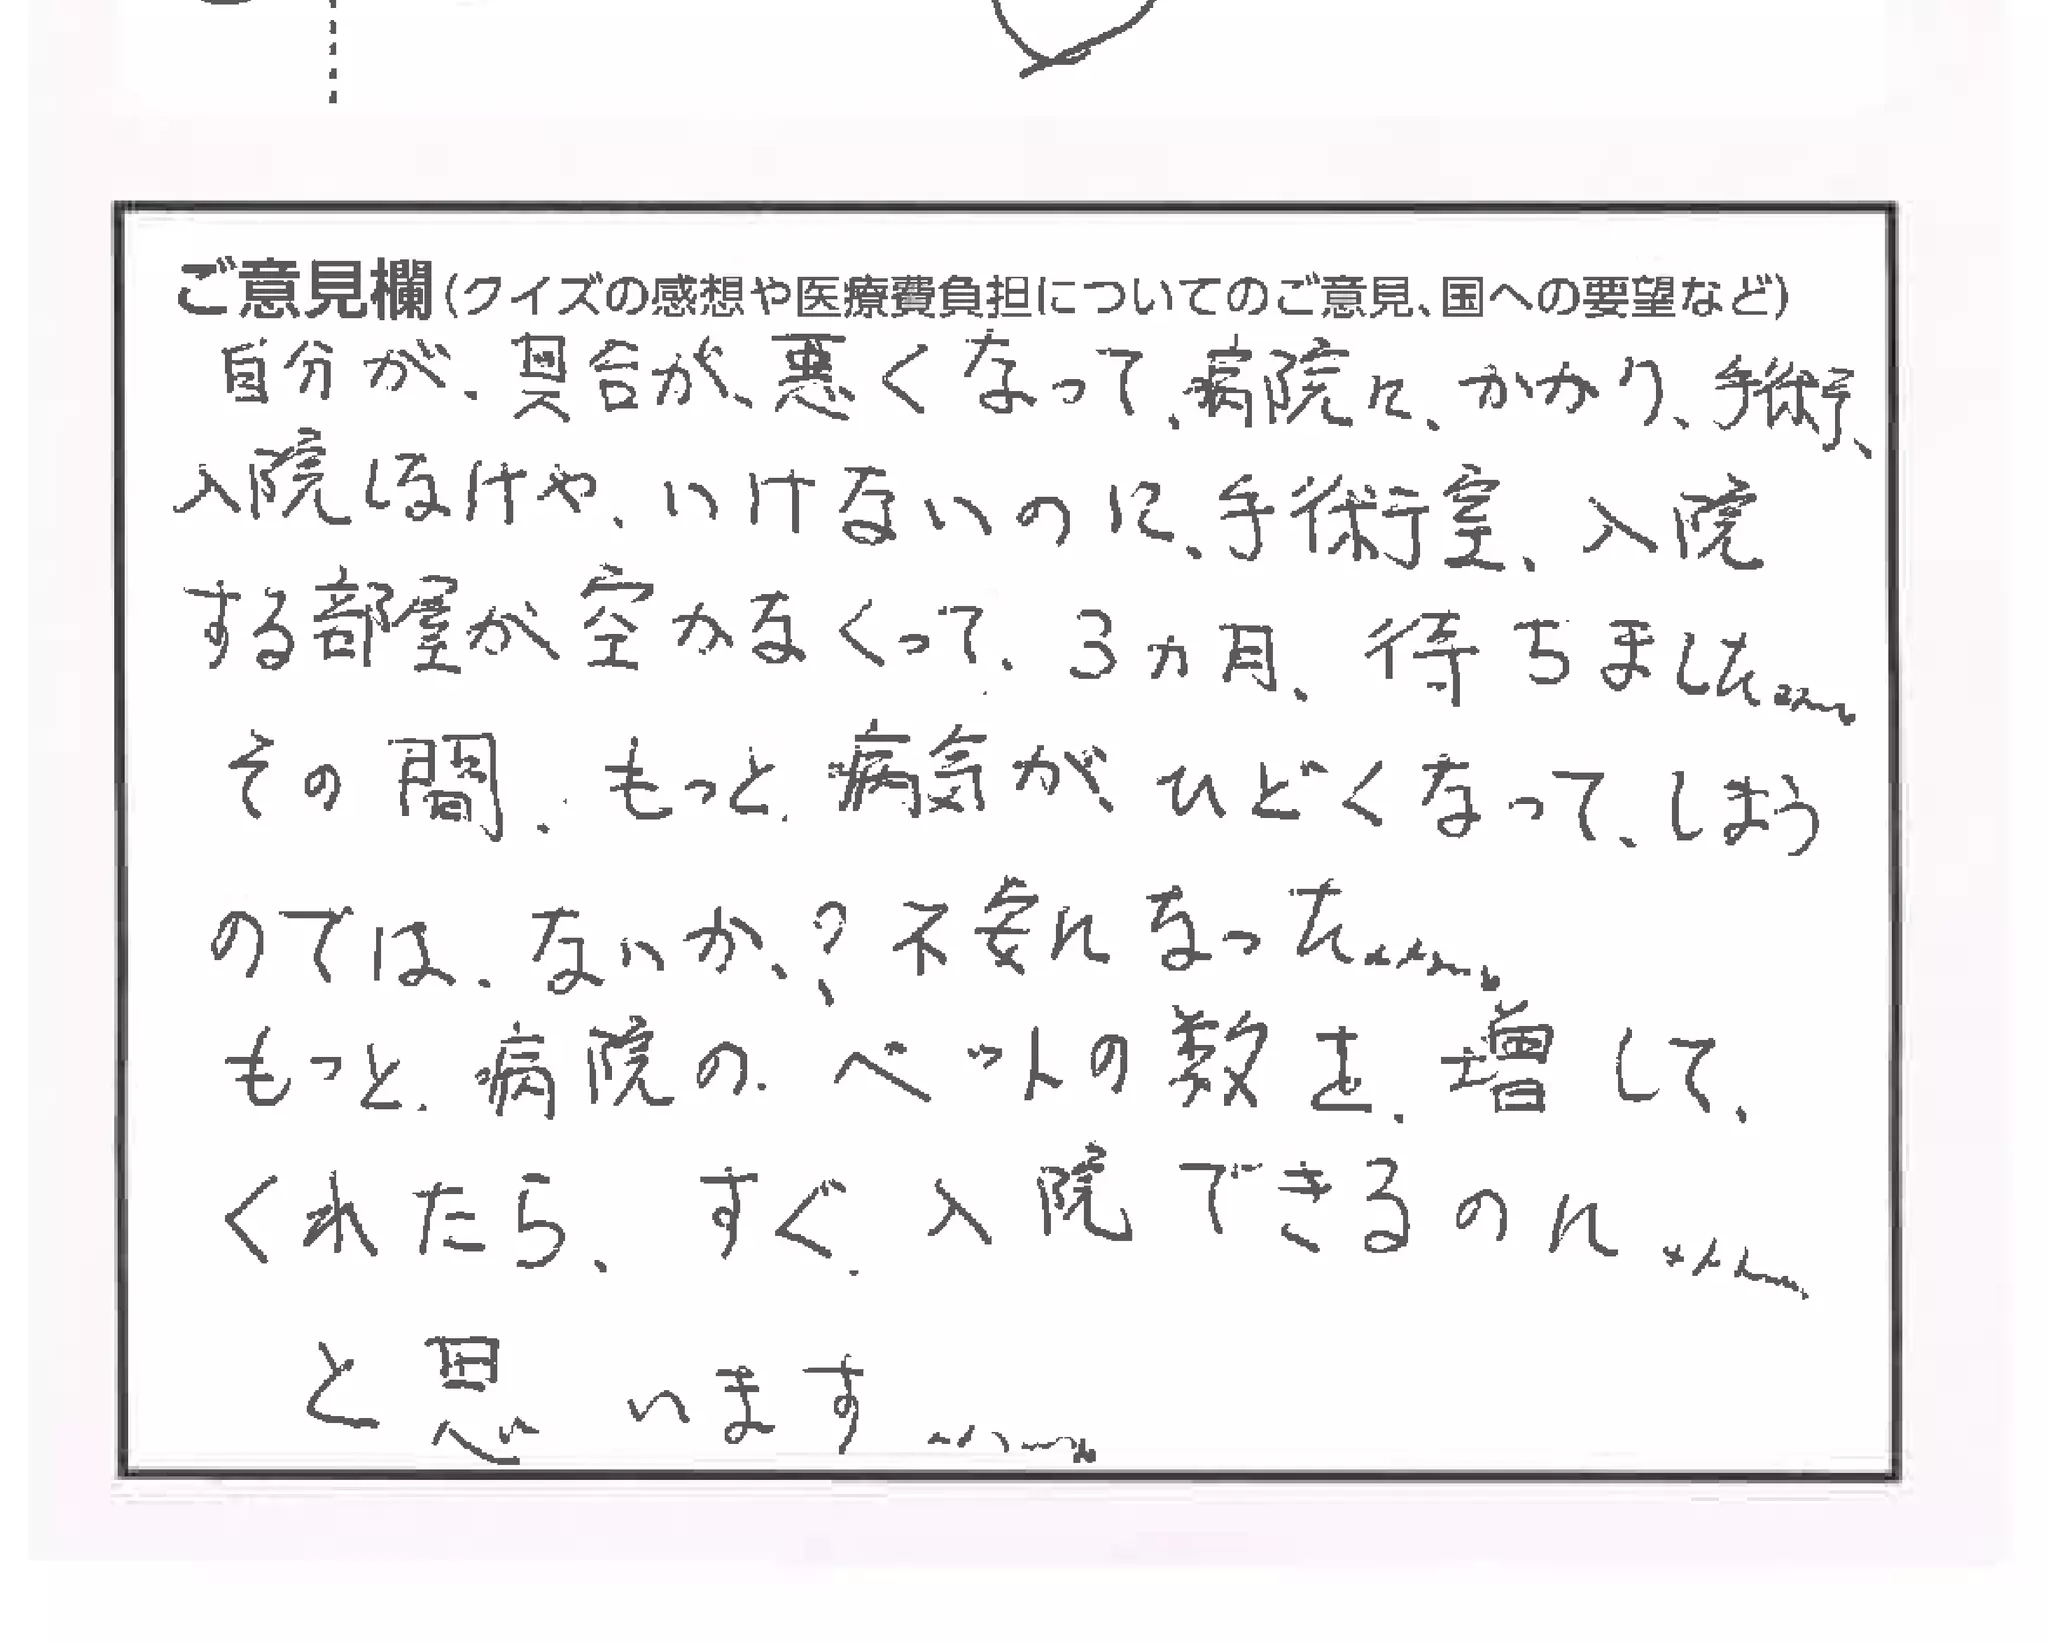 ご意見欄(クイズの感想や医療費負担についてのご意見、国への要望など)
自分が、具合が、悪くなって、病院に、かかり、手術、
入院しなけや、いけないのに、手術室、入院
する部屋が空かなくって、3ヵ月、待ちました……。
その間、もっと、病気が、ひどくなって、しまう
のでは、ないか、?不安になった……。
もっと、病院の、ベットの数を、増して、
くれたら、すぐ、入院できるのに……
と思います……。